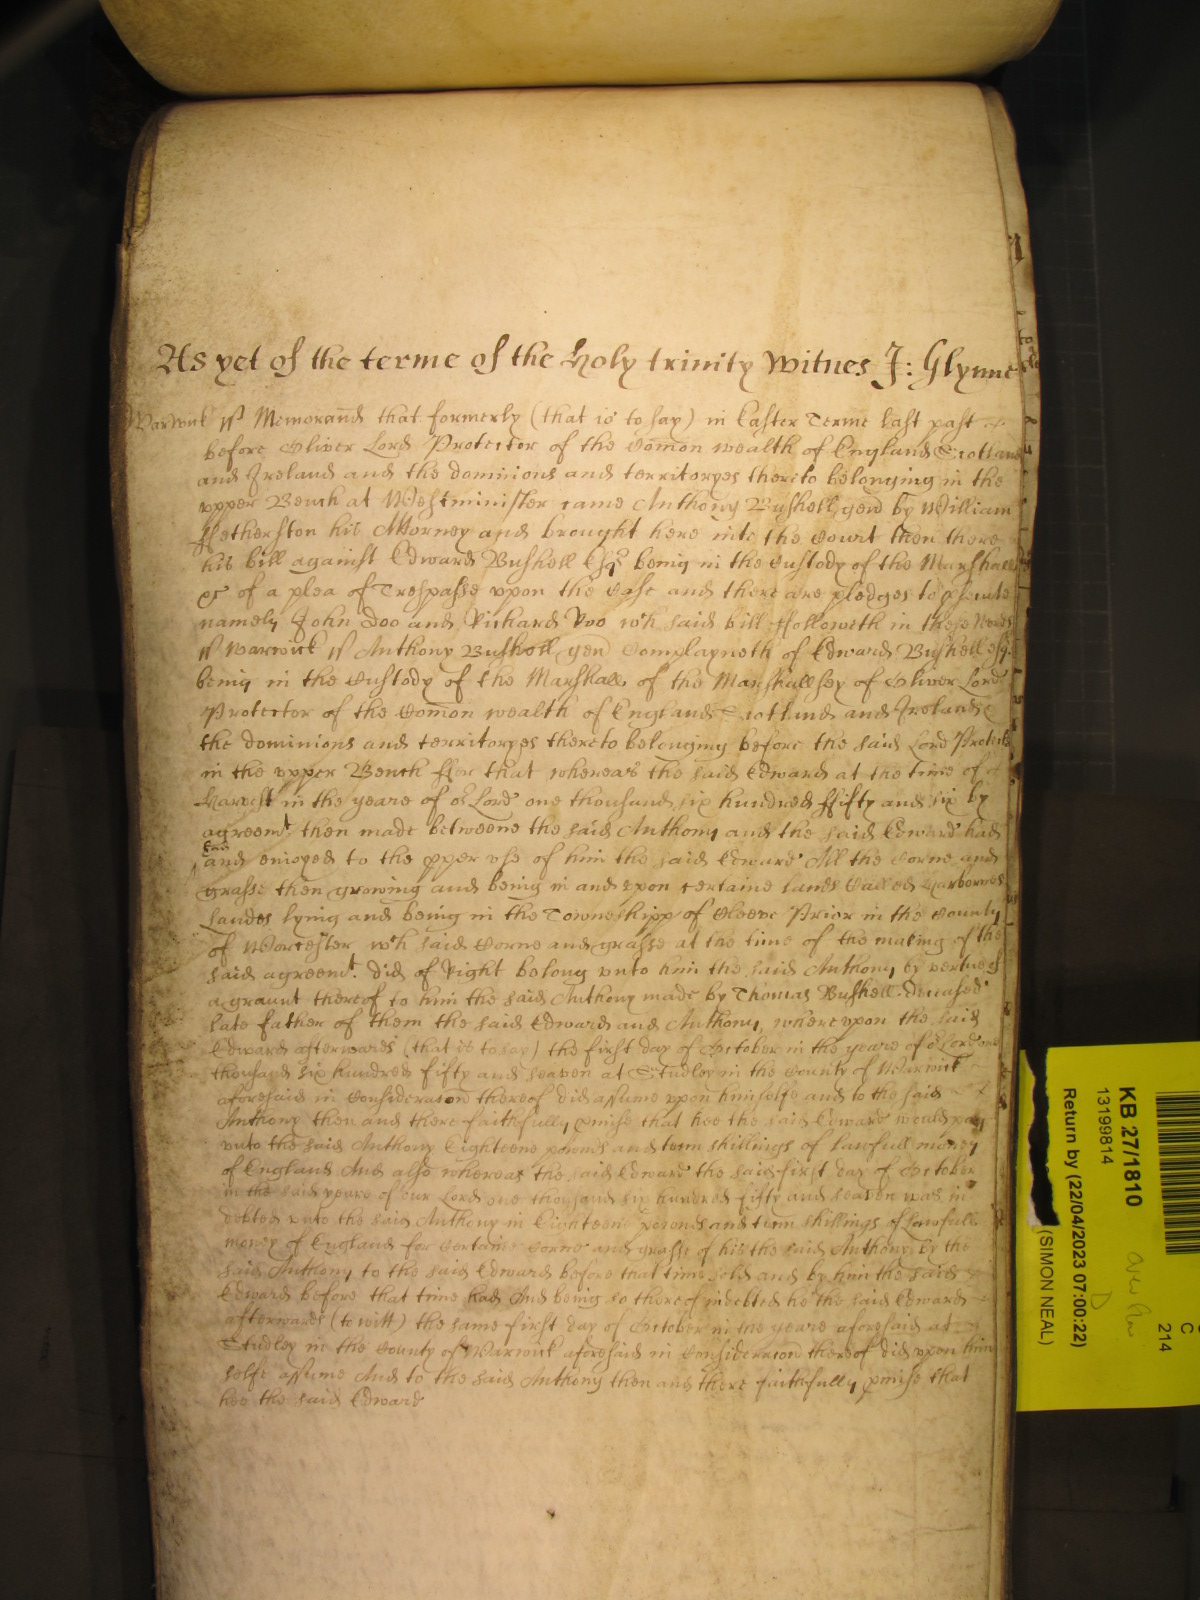 As yet of the terme of the Holy trinity Witnes J: Glynne
Warwick ss Memorand that formerly (that is to say) in Easter Terme last past
before Oliver Lord Protector of the Comon wealth of England Scotland
and Ireland and the dominions and territoryes thereto belonging in the
upper Bench at Westminister came Anthony Bushell gent by William
Hetherston his Attorney and brought here into the Court then there
his bill against Edward Bushell Esqr being in the Custody of the Marshall
&c of a plea of Trespasse upon the Case and there are pledges to psecute
namely John Doo and Richard Roo wch said bill ffolloweth in these Words
ss Warwick ss Anthony Bushell gent Complayneth of Edward Bushell esqr
being in the Custody of the Marshall of the Marshallsey of Oliver Lord
Protector of the Comon wealth of England Scotland and Ireland &
the dominions and territoryes thereto belonging before the said Lord Protector
in the upper Bench ffor that whereas the said Edward at the time of
Harvest in the yeare of or Lord one thousand six hundred ffifty and six by
agreemt then made betweene the said Anthony and the said Edward had
and enioyed to the pper use of him the said Edward All the Corne and
grasse then growing and being in and upon certaine lands Called Harbornes
Landes lying and being in the Towneshipp of Cleeve Prior in the County
of Worcester wch said Corne and grasse at the time of the making of the
said agreemt did of Right belong unto him the said Anthony by vertue of
a graunt thereof to him the said Anthony made by Thomas Bushell deceased
late father of them the said Edward and Anthony, whereupon the said
Edward afterwards (that is to say) the first day of October in the yeare of or Lord one
thousand six hundred fifty and seaven at Studley in the County of Warwick
aforesaid in Consideracon thereof did assume upon himselfe and to the said
Anthony then and there faithfully pmise that hee the said Edward would pay
unto the said Anthony Eighteene pounds and tenn shillings of lawfull money
of England And also whereas the said Edward the said first day of October
in the said yeare of our Lord one thousand six hundred fifty and seaven was in
debted unto the said Anthony in Eighteene pounds and tenn shillings of lawfull
money of England for Certaine Corne and grasse of his the said Anthony by the
said Anthony to the said Edward before that time sold and by him the said
Edward before that time had And being so thereof indebted he the said Edward
afterwards (to witt) the same first day of October in the yeare aforesaid at
Studley in the County of Warwick aforesaid in Consideracon thereof did upon him
selfe assume And to the said Anthony then and there faithfully pmise that
hee the said Edward
KB 27/1810
13199814
Return by (22/04/2023 07:00:22)
(SIMON NEAL)
C
214
D